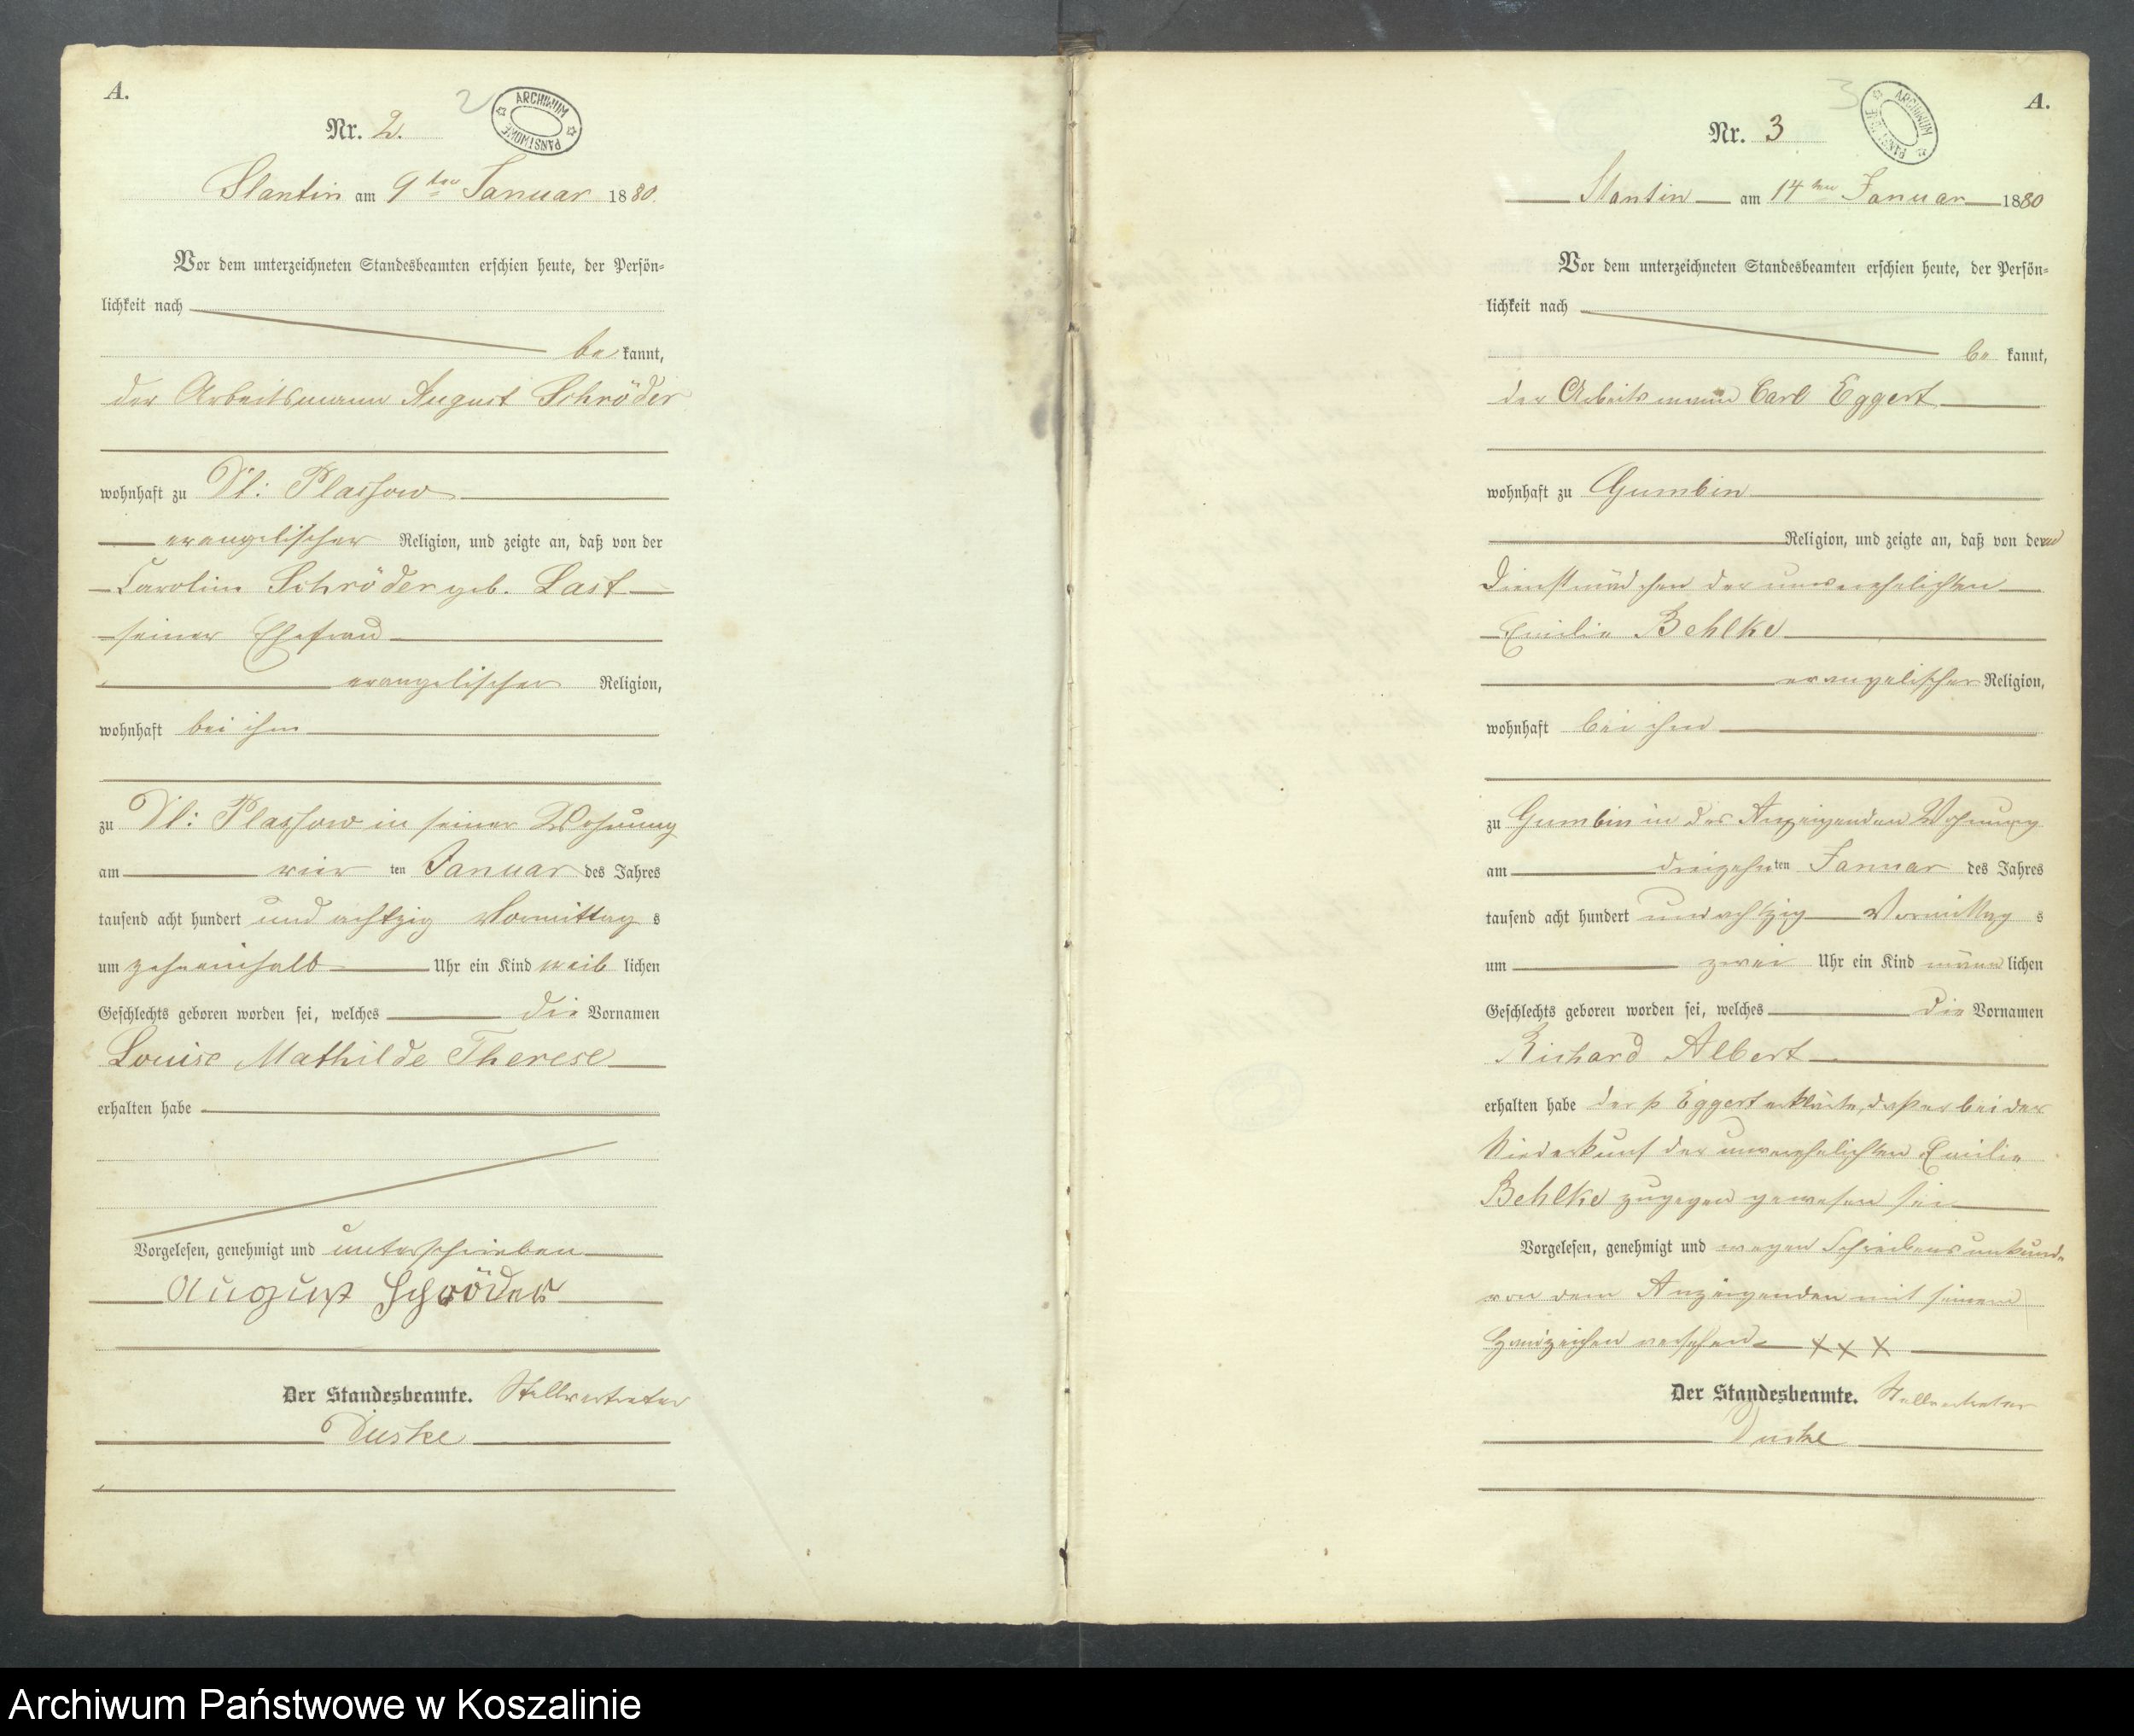 A.
Nr. 2.
2
ARCHIWUM PAŃSTWOWE
Slantin am 9ten Januar 1880.
Vor dem unterzeichneten Standesbeamten erschien heute, der Persön-
lichkeit nach
be kannt,
der Arbeitsmann August Schröder
wohnhaft zu Kl: Plassow
evangelischer Religion, und zeigte an, daß von der
Caroline Schröder geb. Last
seiner Ehefrau
evangelischer Religion,
wohnhaft bei ihm
zu Kl: Plassow in seiner Wohnung
am vier ten Januar des Jahres
tausend acht hundert und achtzig Vormittag s
um zehneinhalb Uhr ein Kind weib lichen
Geschlechts geboren worden sei, welches die Vornamen
Louise Mathilde Therese
erhalten habe
Vorgelesen, genehmigt und unterschrieben
August Schröder
Der Standesbeamte. Stellvertreter
A.
Nr. 3
3
ARCHIWUM PAŃSTWOWE
Slantin am 14ten Januar 1880
Vor dem unterzeichneten Standesbeamten erschien heute, der Persön-
lichkeit nach
be kannt,
der Arbeitsmann Carl Eggert
wohnhaft zu Gumbin
Religion, und zeigte an, daß von dem
Dienstmädchen der unverehelichten
Emilie Behlke
evangelischer Religion,
wohnhaft bei ihm
zu Gumbin in des Anzeigenden Wohnung
am dreizehn ten Januar des Jahres
tausend acht hundert und achtzig Vormittag s
um zwei Uhr ein Kind männ lichen
Geschlechts geboren worden sei, welches die Vornamen
Richard Albert
erhalten habe der p Eggert erklärte, daß er bei der
Niederkunf der unverehelichten Emilie
Behlke zugegen gewesen sei
Vorgelesen, genehmigt und wegen Schreibensunkunde
von dem Anzeigenden mit seinem
Handzeichen versehen. XXX
Der Standesbeamte. Stellvertreter
Archiwum Państwowe w Koszalinie